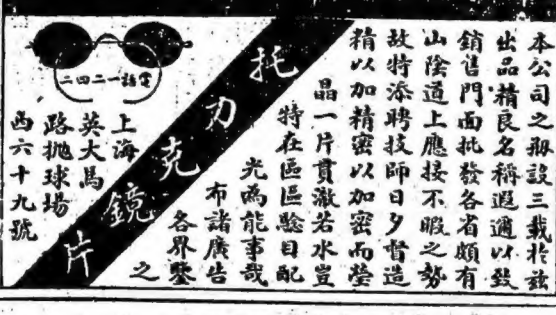 本公司之冊設三載於茲
出品精良名稱遐邇以致
銷售門面批發各省頗有
山陰道上應接不暇之勢
故特添聘技師日夕督造
精以加精密以加密而瑩
晶一片貫澈若水豈
特在區區驗目配
光為能事哉
布諸廣告
各界鑒
之
托力克鏡片
電話一二四二
上海
英大馬
路拋球場
西六十九號